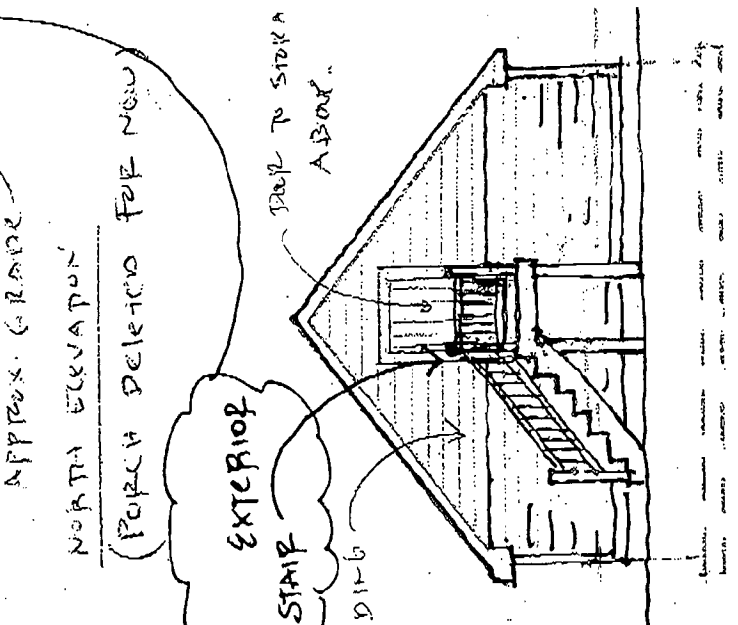 APPROX. GRADE
NORTH ELEVATION
(PORCH DELETED FOR NOW)
EXTERIOR
STAIR
DOOR TO STORA
ABOVE.
DING